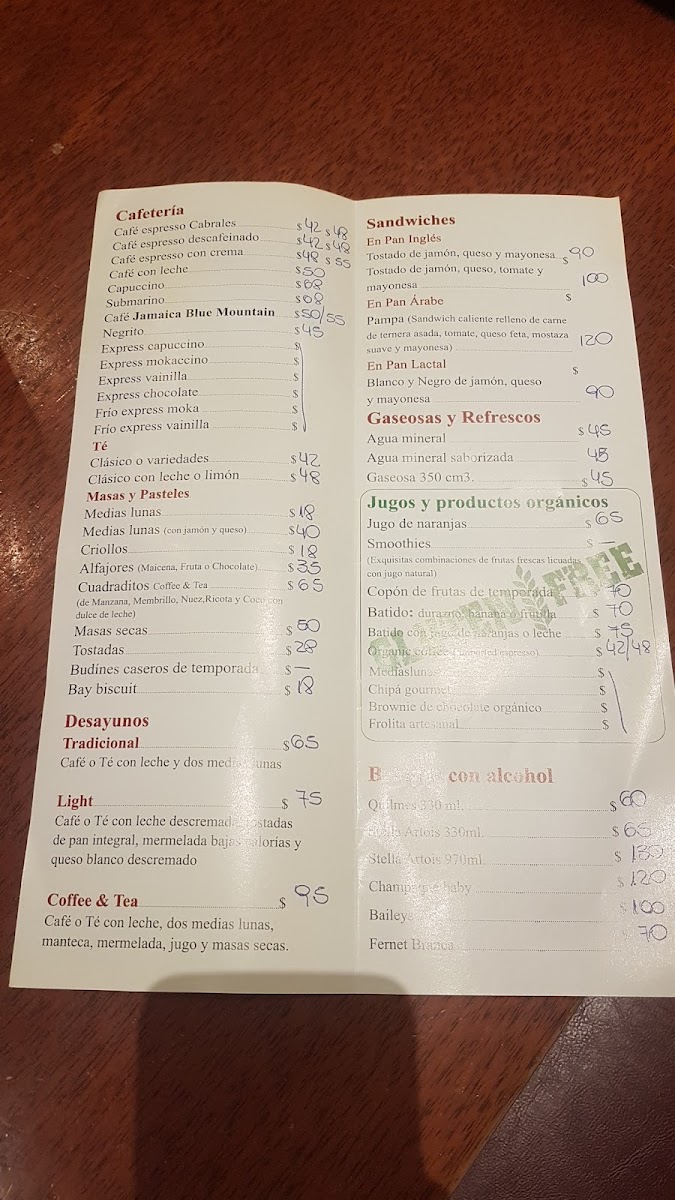 Cafetería
Café espresso Cabrales $42 $48
Café espresso descafeinado $42 $48
Café espresso con crema $48 $55
Café con leche $50
Capuccino $68
Submarino $68
Café Jamaica Blue Mountain $50/55
Negrito $45
Express capuccino $
Express mokaccino $
Express vainilla $
Express chocolate $
Frío express moka $
Frío express vainilla $
Té
Clásico o variedades $42
Clásico con leche o limón $48
Masas y Pasteles
Medias lunas $18
Medias lunas (con jamón y queso) $40
Criollos $18
Alfajores (Maicena, Fruta o Chocolate) $35
Cuadraditos Coffee & Tea $65
(de Manzana, Membrillo, Nuez,Ricota y Coco con
dulce de leche)
Masas secas $50
Tostadas $28
Budínes caseros de temporada $—
Bay biscuit $18
Desayunos
Tradicional $65
Café o Té con leche y dos medias lunas
Light $75
Café o Té con leche descremada, tostadas
de pan integral, mermelada bajas calorías y
queso blanco descremado
Coffee & Tea $95
Café o Té con leche, dos medias lunas,
manteca, mermelada, jugo y masas secas.
Sandwiches
En Pan Inglés
Tostado de jamón, queso y mayonesa $90
Tostado de jamón, queso, tomate y
mayonesa 100
En Pan Árabe $
Pampa (Sandwich caliente relleno de carne
de ternera asada, tomate, queso feta, mostaza
suave y mayonesa) 120
En Pan Lactal $
Blanco y Negro de jamón, queso
y mayonesa 90
Gaseosas y Refrescos
Agua mineral $45
Agua mineral saborizada 45
Gaseosa 350 cm3. $45
Jugos y productos orgánicos
Jugo de naranjas $65
Smoothies $—
(Exquisitas combinaciones de frutas frescas licuadas
con jugo natural)
GLUTEN FREE
Copón de frutas de temporada $70
Batido: durazno, banana o frutilla $70
Batido con jugo de naranjas o leche $75
Organic coffee (imported espresso) $42/48
Mediaslunas $
Chipá gourmet $
Brownie de chocolate orgánico $
Frolita artesanal $
con alcohol
Quilmes 330 ml. $60
Stella Artois 330ml $65
Stella Artois 970ml $130
Champagne baby $120
Baileys $100
Fernet Branca 70